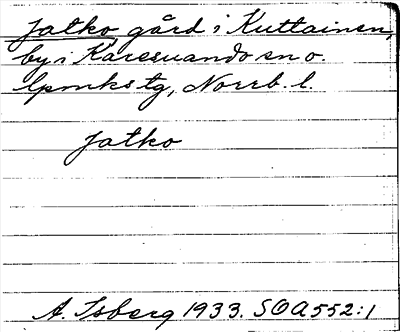 Jatko, gård i Kuttainen,
by i Karesuando sn o.
lpmks tg, Norrb. l.
Jatko
A. Isberg 1933. SOA 552:1